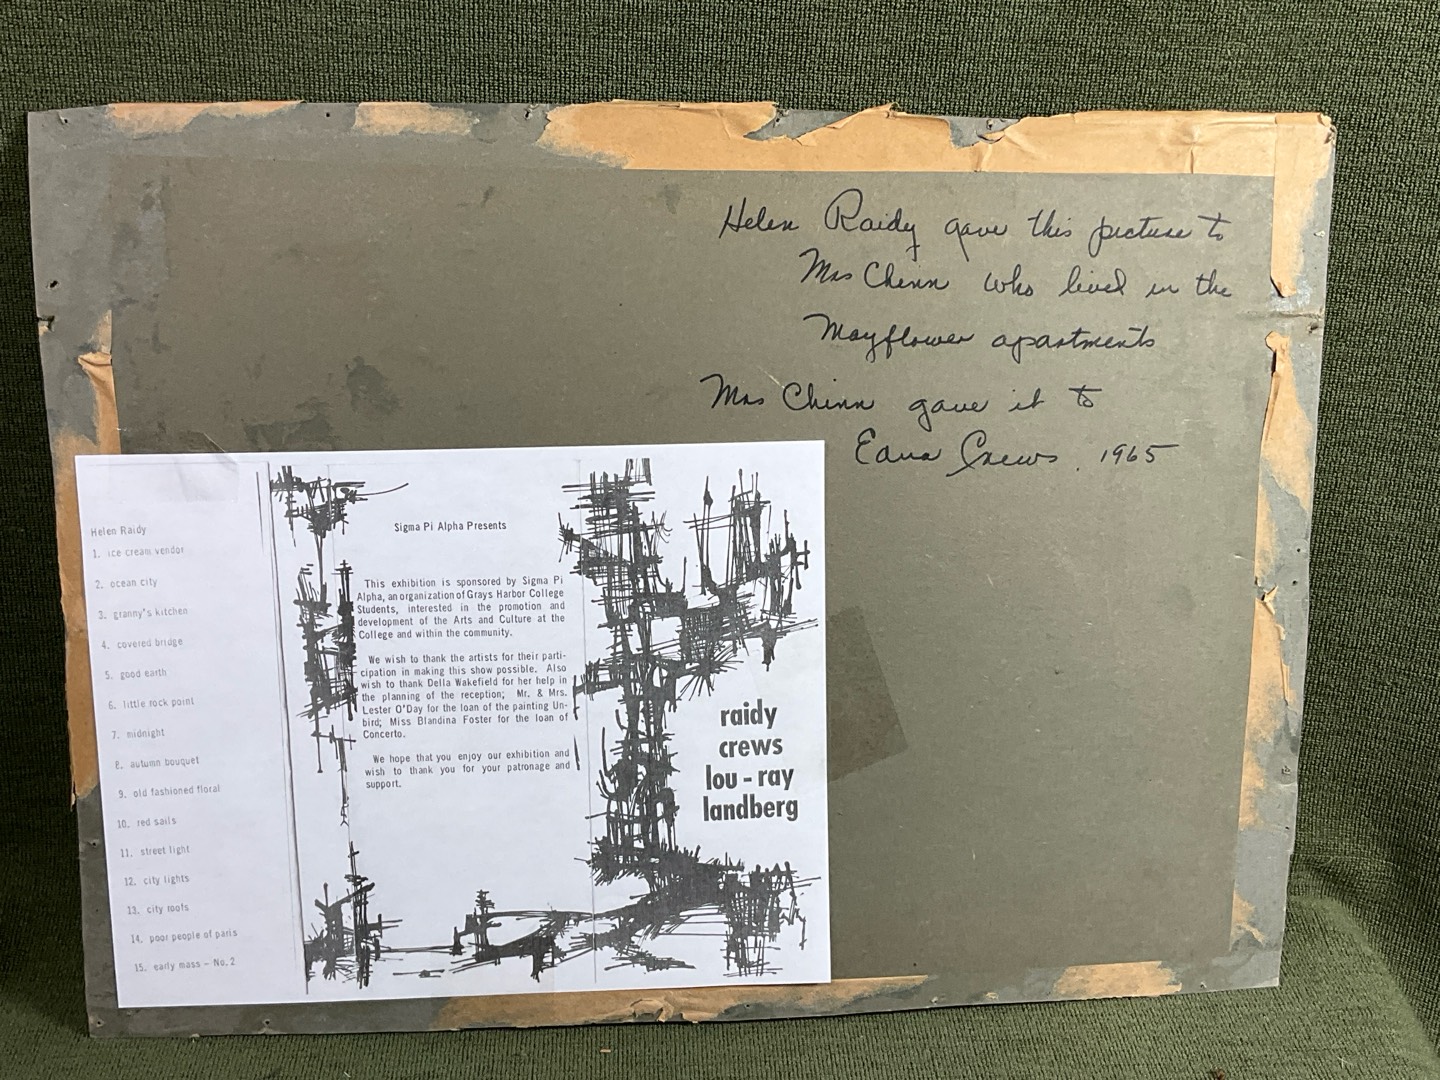 Helen Raidy gave this picture to
Mrs Chinn who lived in the
Mayflower apartments
Mrs Chinn gave it to
Edna Crews. 1965
Helen Raidy
1. ice cream vendor
2. ocean city
3. granny's kitchen
4. covered bridge
5. good earth
6. little rock point
7. midnight
8. autumn bouquet
9. old fashioned floral
10. red sails
11. street light
12. city lights
13. city roofs
14. poor people of paris
15. early mass – No. 2
Sigma Pi Alpha Presents
This exhibition is sponsored by Sigma Pi
Alpha, an organization of Grays Harbor College
Students, interested in the promotion and
development of the Arts and Culture at the
College and within the community.
We wish to thank the artists for their parti-
cipation in making this show possible. Also
wish to thank Della Wakefield for her help in
the planning of the reception; Mr. & Mrs.
Lester O'Day for the loan of the painting Un-
bird; Miss Blandina Foster for the loan of
Concerto.
We hope that you enjoy our exhibition and
wish to thank you for your patronage and
support.
raidy
crews
lou - ray
landberg